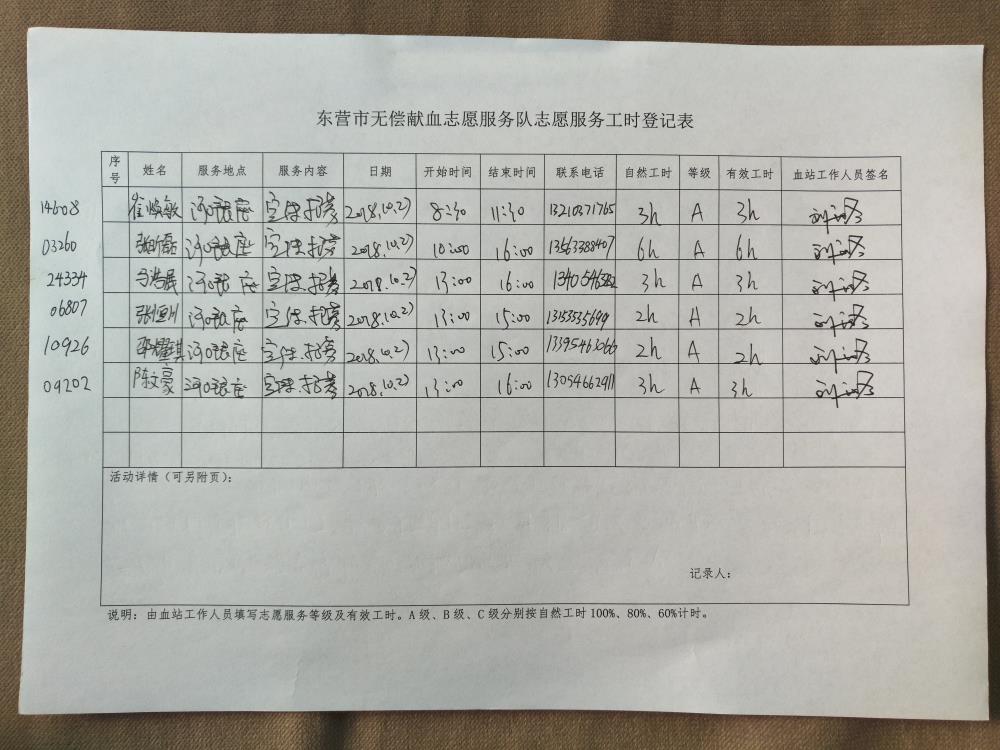 东营市无偿献血志愿服务队志愿服务工时登记表
序号 姓名 服务地点 服务内容 日期 开始时间 结束时间 联系电话 自然工时 等级 有效工时 血站工作人员签名
14608 崔焕敏 河口银座 宣传招募 2018.10.27 8:30 11:30 13210371765 3h A 3h
03260 河口银座 宣传招募 2018.10.27 10:00 16:00 13563388407 6h A 6h
24334 河口银座 宣传.招募 2018.10.27 13:00 16:00 3h A 3h
06807 张恒川 河口银座 宣传.招募 2018.10.27 13:00 15:00 2h A 2h
10926 河口银座 宣传.招募 2018.10.27 13:00 15:00 13395463066 2h A 2h
04202 陈文豪 河口银座 宣传.招募 2018.10.27 13:00 16:00 13054662911 3h A 3h
活动详情（可另附页）：
记录人：
说明：由血站工作人员填写志愿服务等级及有效工时。A级、B级、C级分别按自然工时100%、80%、60%计时。